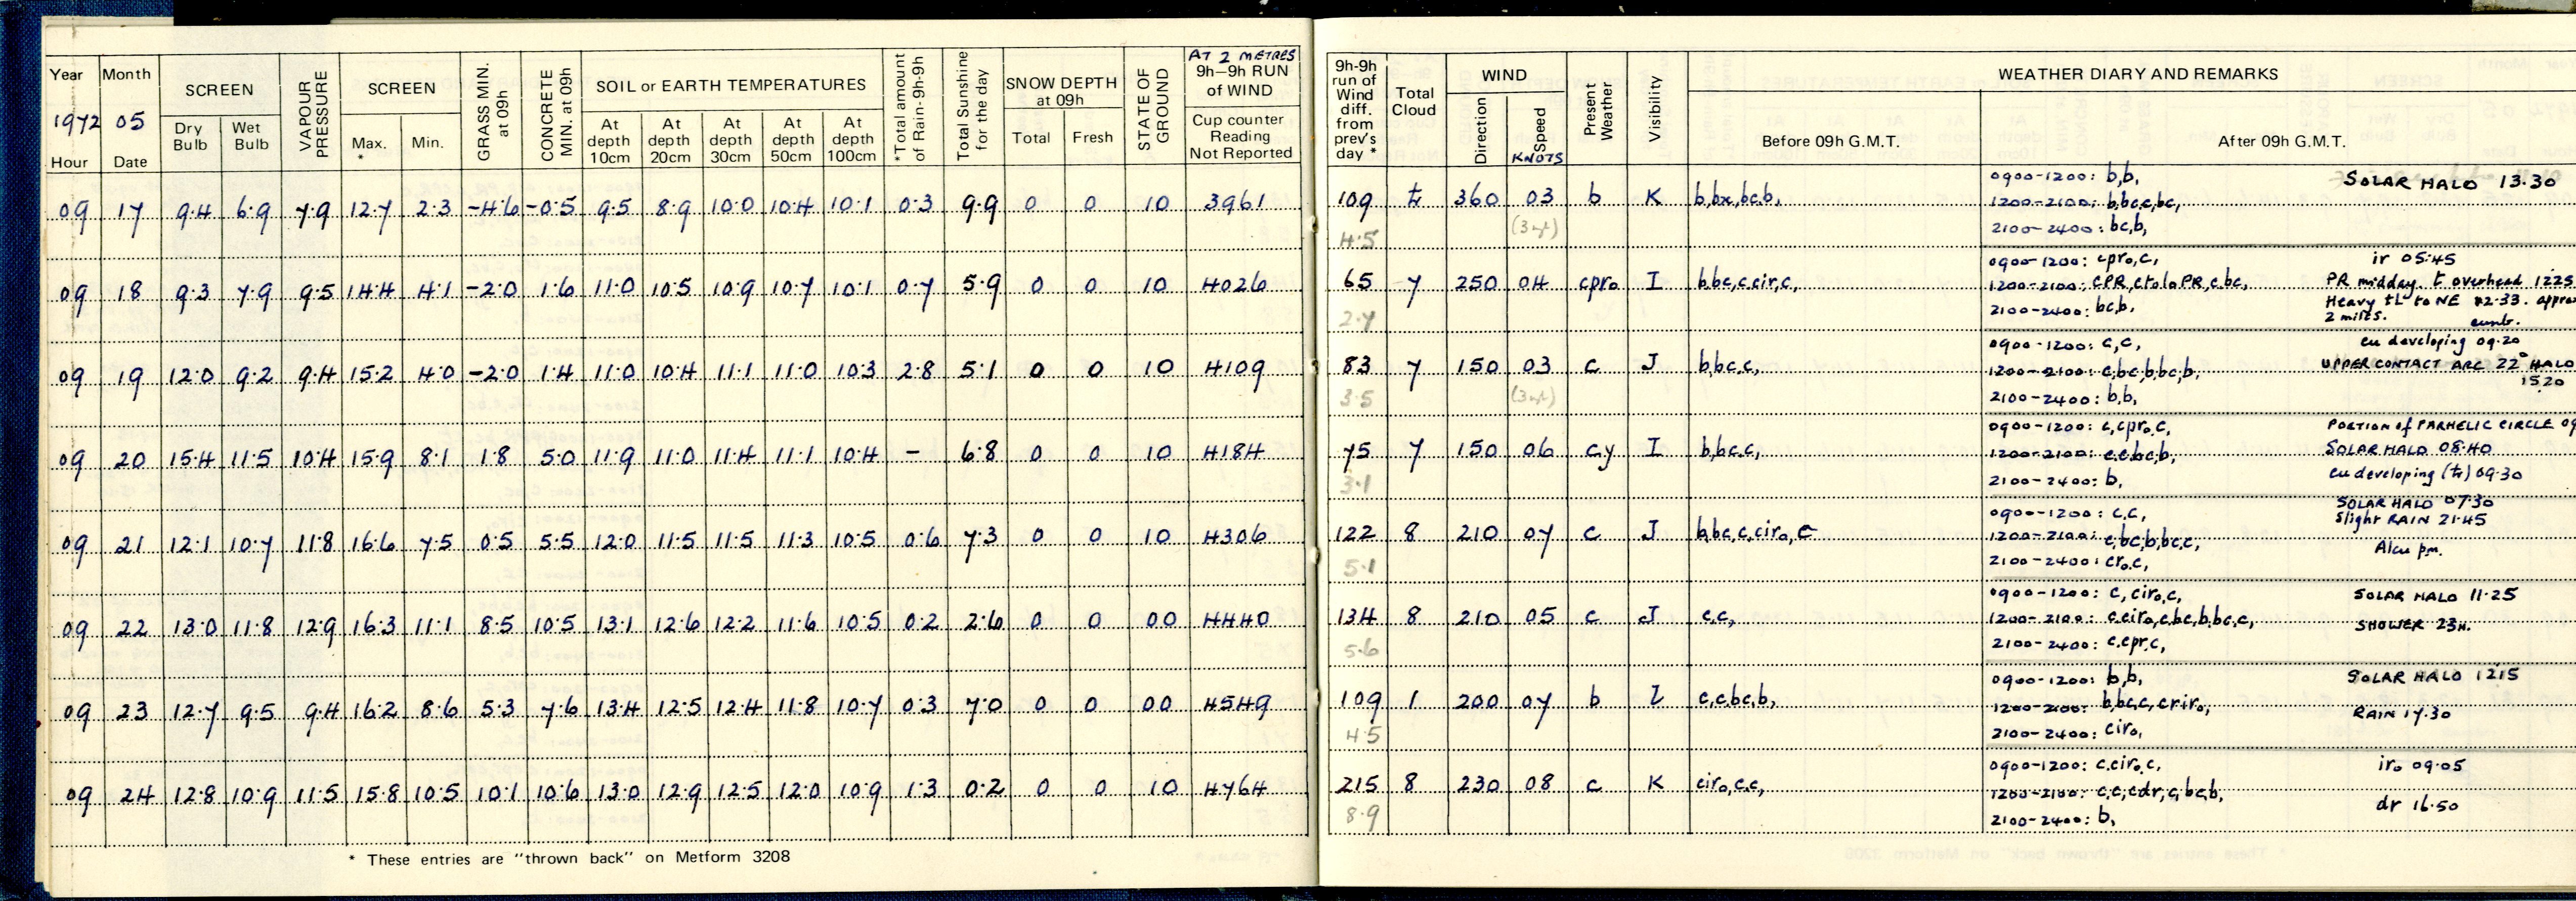 Year Month SCREEN VAPOUR PRESSURE SCREEN GRASS MIN. at 09h CONCRETE MIN. at 09h SOIL or EARTH TEMPERATURES *Total amount of Rain-9h-9h Total Sunshine for the day SNOW DEPTH at 09h STATE OF GROUND AT 2 METRES 9h-9h RUN of WIND
1972 05 Dry Bulb Wet Bulb Max. * Min. At depth 10cm At depth 20cm At depth 30cm At depth 50cm At depth 100cm Total Fresh Cup counter Reading Not Reported
Hour Date
09 17 9.4 6.9 7.9 12.7 2.3 -4.6 -0.5 9.5 8.9 10.0 10.4 10.1 0.3 9.9 0 0 10 3961
09 18 9.3 7.9 9.5 14.4 4.1 -2.0 1.6 11.0 10.5 10.9 10.7 10.1 0.7 5.9 0 0 10 4026
09 19 12.0 9.2 9.4 15.2 4.0 -2.0 1.4 11.0 10.4 11.1 11.0 10.3 2.8 5.1 0 0 10 4109
09 20 15.4 11.5 10.4 15.9 8.1 1.8 5.0 11.9 11.0 11.4 11.1 10.4 - 6.8 0 0 10 4184
09 21 12.1 10.7 11.8 16.6 7.5 0.5 5.5 12.0 11.5 11.5 11.3 10.5 0.6 7.3 0 0 10 4306
09 22 13.0 11.8 12.9 16.3 11.1 8.5 10.5 13.1 12.6 12.2 11.6 10.5 0.2 2.6 0 0 00 4440
09 23 12.7 9.5 9.4 16.2 8.6 5.3 7.6 13.4 12.5 12.4 11.8 10.7 0.3 7.0 0 0 00 4549
09 24 12.8 10.9 11.5 15.8 10.5 10.1 10.6 13.0 12.9 12.5 12.0 10.9 1.3 0.2 0 0 10 4764
* These entries are "thrown back" on Metform 3208
9h-9h run of Wind diff. from prev's day * Total Cloud WIND Present Weather Visibility WEATHER DIARY AND REMARKS
Direction Speed KNOTS Before 09h G.M.T. After 09h G.M.T.
0900-1200: b,b, SOLAR HALO 13.30
109 360 03 b K b,bx,bc,b, 1200-2100: b,bc,c,bc,
4.5 2100-2400: bc,b,
0900-1200: cpro,c, ir 05.45
65 7 250 04 cpro I b,bc,c,cir,c, 1200-2100: cPR,ctolo PR,c,bc, PR midday. t overhead 1225
2.7 2100-2400: bc,b, Heavy tL to NE 12.33.
2 miles. cunb.
0900-1200: c,c, cu developing 09.20
83 7 150 03 c J b,bc,c, 1200-2100: c,bc,b,bc,b, UPPER CONTACT ARC 22° HALO
3.5 2100-2400: b,b, 1520
0900-1200: c,cpro,c, PORTION of PARHELIC CIRCLE
75 7 150 06 cy I b,bc,c, 1200-2100: c,c,bc,b, SOLAR HALO 08.40
3.1 2100-2400: b, cu developing 09.30
SOLAR HALO 07.30
0900-1200: c,c, Slight RAIN 21.45
122 8 210 07 c J b,bc,c,ciro,c 1200-2100: c,bc,b,bc,c, Alcu pm.
5.1 2100-2400: cro,c,
0900-1200: c,ciro,c, SOLAR HALO 11.25
134 8 210 05 c J c,c, 1200-2100: c,ciro,c,bc,b,bc,c, SHOWER 23H.
5.6 2100-2400: c,cpr,c,
0900-1200: b,b, SOLAR HALO 1215
109 1 200 07 b c,c,bc,b, 1200-2100: b,bc,c,criro, RAIN 17.30
4.5 2100-2400: ciro,
0900-1200: c,ciro,c, iro 09.05
215 8 230 08 c K ciro,c,c, 1200-2100: c,c,cdr,c,bc,b, dr 16.50
8.9 2100-2400: b,